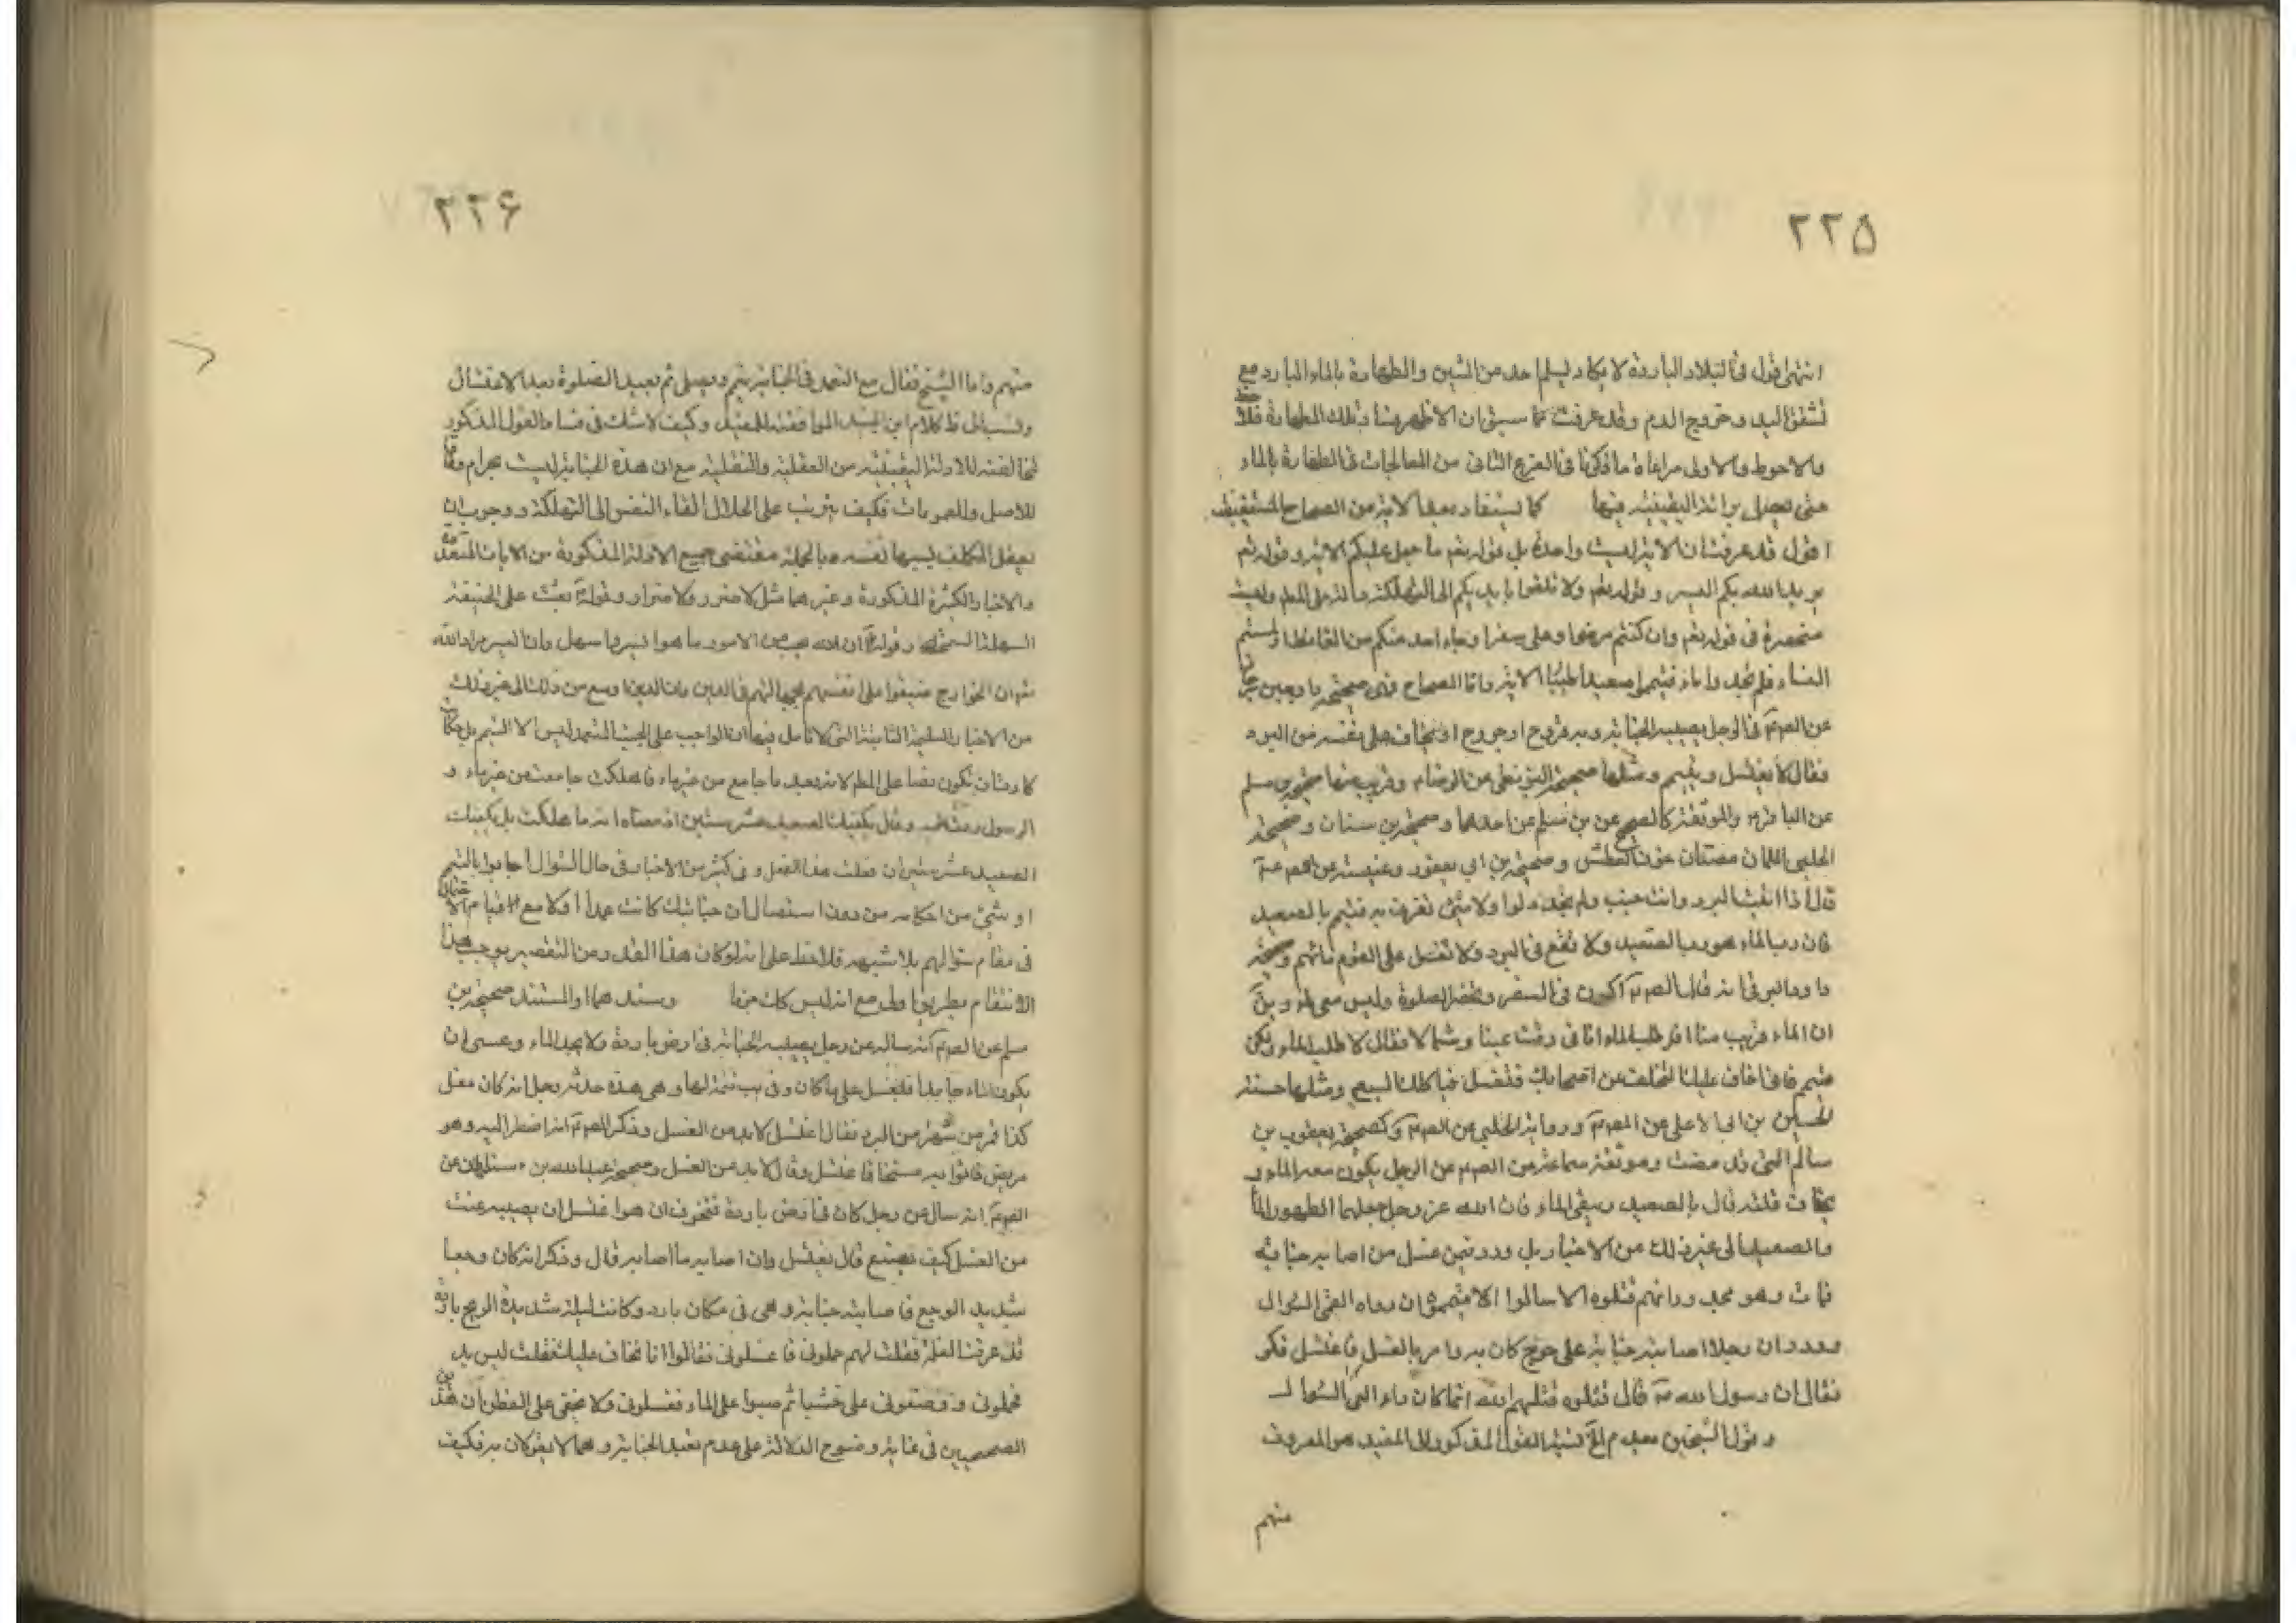 ۲۲۵
انتهى اقول فى البلاد الباردة لا يكاد يسلم احد من الشين والطهارة بالماء البارد مع
تشقق اليد وخروج الدم وقد عرفت مما سبق ان الاظهر بتلك الطهارة فلاحظ
والاحوط والاولى مراعاة ما ذكرنا فى الفرع الثانى من المعالجات فى الطهارة بالماء
حتى يحصل برائة اليقينية فيها كما يستفاد بعد الاية من الصحاح المستفيضة
اقول قد عرفت ان الاية ليست واحدة بل قوله تعم ما جعل عليكم الاية وقوله تعم
يريد الله بكم اليسر وقوله تعم ولا تلقوا بايديكم الى التهلكة دالة على المطم وليست
منحصرة فى قوله تعم وان كنتم مرضى او على سفر او جاء احد منكم من الغائط او لمستم
النساء فلم تجدوا ماء فتيمموا صعيدا طيبا الاية واما الصحاح فهى صحيحة داود بن سرحان
عن الصم فى الرجل يصيبه الجنابة وبه قروح او جروح او يخاف على نفسه من البرد
فقال لا يغتسل ويتيمم ومثلها صحيحة البزنطى عن الرضاء وقريب منها صحيحة بن مسلم
عن الباقر والموثقة كالصحيح عن بن مسلم عن احدهما وصحيحة بن سنان وصحيحة
الحلبى اللتان مضتا عن العطش وصحيحة بن ابى يعفور وعنبسة عن الصم
قال اذا اتيت البئر وانت جنب ولم تجد دلوا ولا شيئ تغرف به فتيمم بالصعيد
فان رب الماء هو رب الصعيد ولا تقع فى البئر ولا تفسد على القوم مائهم وصحيحة
داود الرقى انه قال للصم اكون فى السفر وتحضر الصلوة وليس معى ماء ويق
ان الماء قريب منا افاطلب الماء وانا فى وقت يمينا وشمالا فقال لا تطلب الماء ولكن
تيمم فانى اخاف عليك التخلف عن اصحابك فتضل فياكلك السبع ومثلها حسنة
الحسين بن ابى العلا عن الصم ورواية الحلبى عن الصم وكصحيحة يعقوب بن
سالم التى قد مضت وموثقة سماعة عن الصم عن الرجل يكون معه الماء و
يخاف قلته قال بالصعيد وسقى الماء فان الله عز وجل جعلهما الطهور الماء
والصعيد الى غير ذلك من الاخبار بل ورد فيمن غسل من اصابه جنابة
فمات وهو مجدور انهم قتلوه الا سالوا الا يمموه ان دواء العى السؤال
وورد ان رجلا اصابته جنابة على جرح كان به وامر بالغسل فاغتسل فكز
فقال ان رسول الله ص قال قتلوه قتلهم الله انما كان دواء العى السؤال
وقول الشيخين بعدم الخ نسبة القول المذكور الى المفيد هو المعروف
منهم
۲۲۶
منهم واما الشيخ فقال مع التعمد فى الجنابة يتيمم ويصلى ثم يعيد الصلوة بعد الاغتسال
ونسب الى ظ كلام ابن الجنيد الموافقة للمفيد وكيف لا شك فى فساد القول المذكور
لمخالفته للادلة اليقينية من العقلية والنقلية مع ان هذه الجنابة ليست بحرام وفاقا
للاصل والعمومات فكيف يترتب على الحلال القاء النفس الى التهلكة ووجوب ان
يقتل المكلف بسببها نفسه وبالجملة مقتضى جميع الادلة المذكورة من الايات المتعددة
والاخبار الكثيرة المذكورة وغيرهما مثل لا ضرر ولا ضرار وقوله بعثت على الحنيفة
السهلة السمحة وقوله ان الله يحب من الامور ما هو ايسرها سهل وان اليسر مراد الله
منه وان الخوارج ضيقوا على انفسهم بجهالتهم فى الدين وان الدين اوسع من ذلك الى غير ذلك
من الاخبار السليمة الثابتة التى لا تامل فيها ان الواجب على الجنب المتعمد ليس الا التيمم بل
كادت ان تكون نصا على المطم لانه بعيد ما جامع من غير ماء فاهلكت جامعت من غير ماء و
الرسول وقال يكفيك الصعيد عشر سنين اذ معناه انه ما هلكت بل يكفيك
الصعيد عشر سنين ان فعلت هذا الفعل وفى كثير من الاخبار فى حال السؤال اجابوا بالتيمم
او شيئ من احكامه من دون استفصال ان جنابتك كانت عمدا او لا مع
فى مقام سؤالهم بلا شبهة فلاحظ على انه لو كان هذا القدر من التقصير يوجب هذا
الانتقام بطريق اولى مع انه ليس كك جزما وسندهما والمستند صحيحة بن
مسلم عن الصم انه ساله عن رجل يصيبه الجنابة فى ارض باردة ولا يجد الماء وعسى ان
يكون الماء جامدا فليغتسل على ما كان وفى يب تتمة لها وهى هذه حدثه رجل انه كان فعل
كذا فمرض شهرا من البرد فقال اغتسل لابد من الغسل وذكر الصم انه اضطر اليه وهو
مريض فاتوا به مسخنا فاغتسل وقال لابد من الغسل وصحيحة عبد الله بن سليمان عن
الصم انه سال عن رجل كان فى ارض باردة فتخوف ان هو اغتسل ان يصيبه عنت
من الغسل كيف يصنع قال يغتسل وان اصابه ما اصابه قال وذكر انه كان وجعا
شديد الوجع فاصابته جنابة وهى فى مكان بارد وكانت ليلة شديدة الريح باردة
فدعوت الغلمة فقلت لهم حملونى فاغسلونى فقالوا انا نخاف عليك فقلت ليس بد
فحملونى ووضعونى على خشبات ثم صبوا على الماء فغسلونى ولا يخفى على الفطن ان هذين
الصحيحين فى غاية وضوح الدلالة على عدم تعمد الجنابة وهما لا يقولان به فكيف